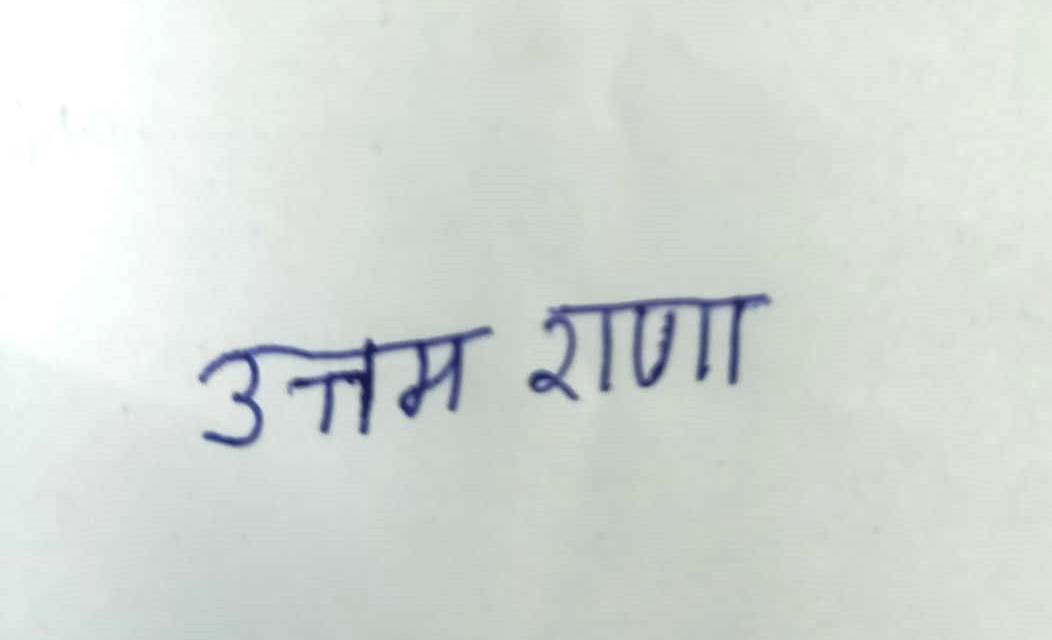 उत्तम राणा